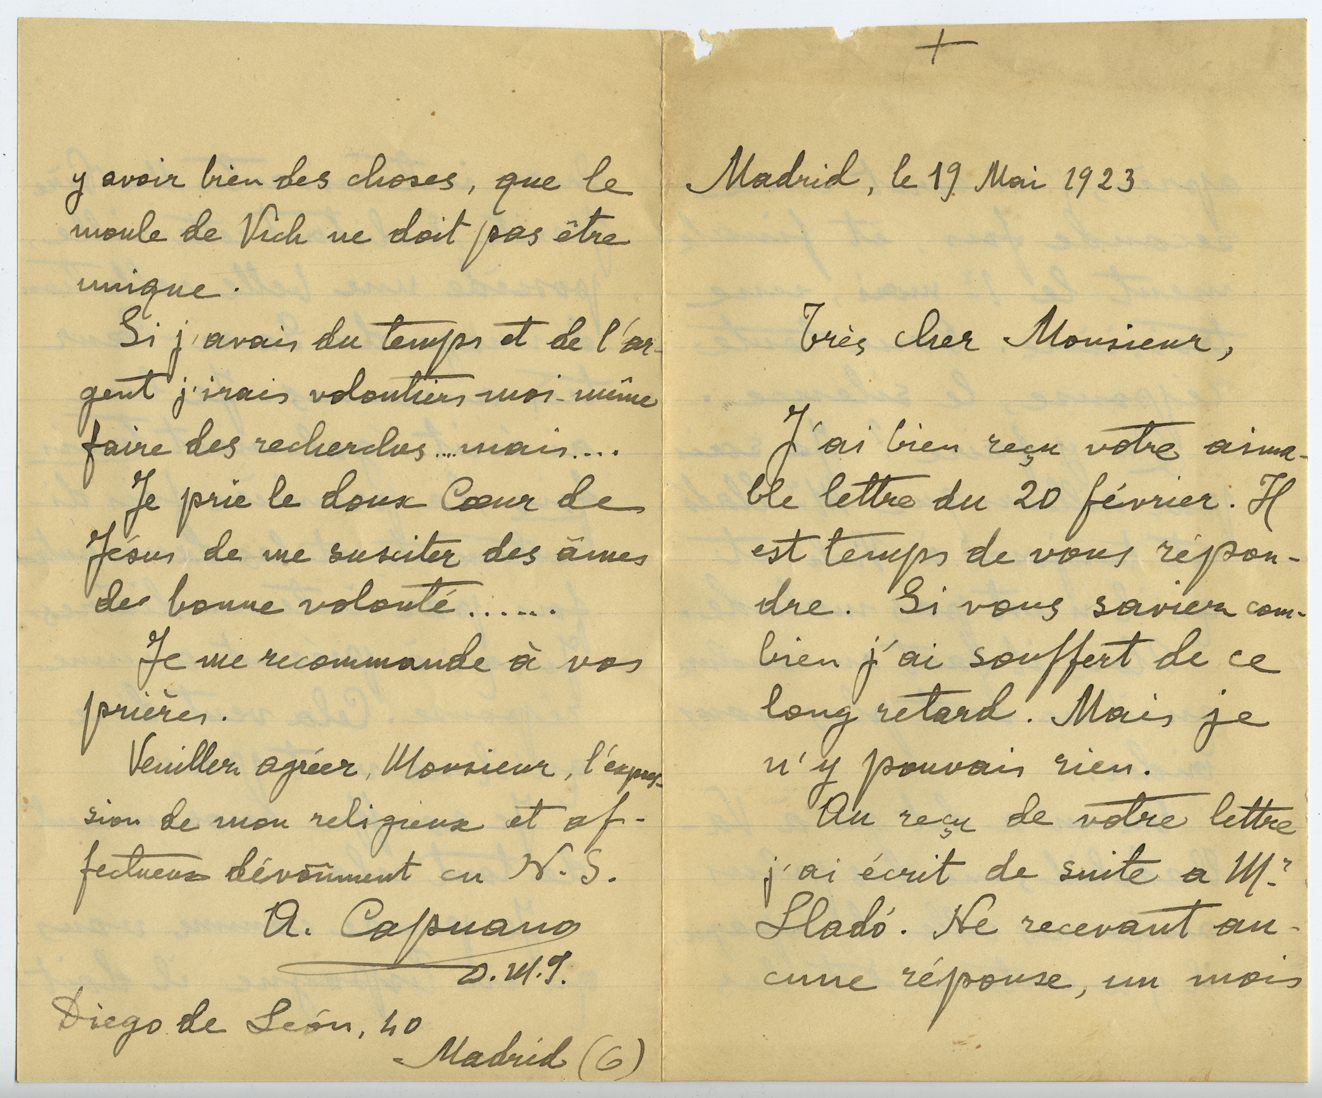 +
Madrid, le 19 Mai 1923
Très cher Monsieur,
J'ai bien reçu votre aima-
ble lettre du 20 février. Il
est temps de vous répon-
dre. Si vous saviez com-
bien j'ai souffert de ce
long retard. Mais je
n'y pouvais rien.
Au reçu de votre lettre
j'ai écrit de suite a Mr
Lladó. Ne recevant au-
cune réponse, un mois
y avoir bien des choses, que le
moule de Vich ne doit pas être
unique.
Si j'avais du temps et de l'ar-
gent j'irais volontiers moi-même
faire des recherches...mais....
Je prie le doux Cœur de
Jésus de me susciter des âmes
de bonne volonté......
Je me recommande à vos
prières.
Veuillez agréer, Monsieur, l'expres-
sion de mon religieux et af-
fectueux dévoûment en N.S.
A. Capuano
O.M.I.
Diego de León, 40
Madrid (6)